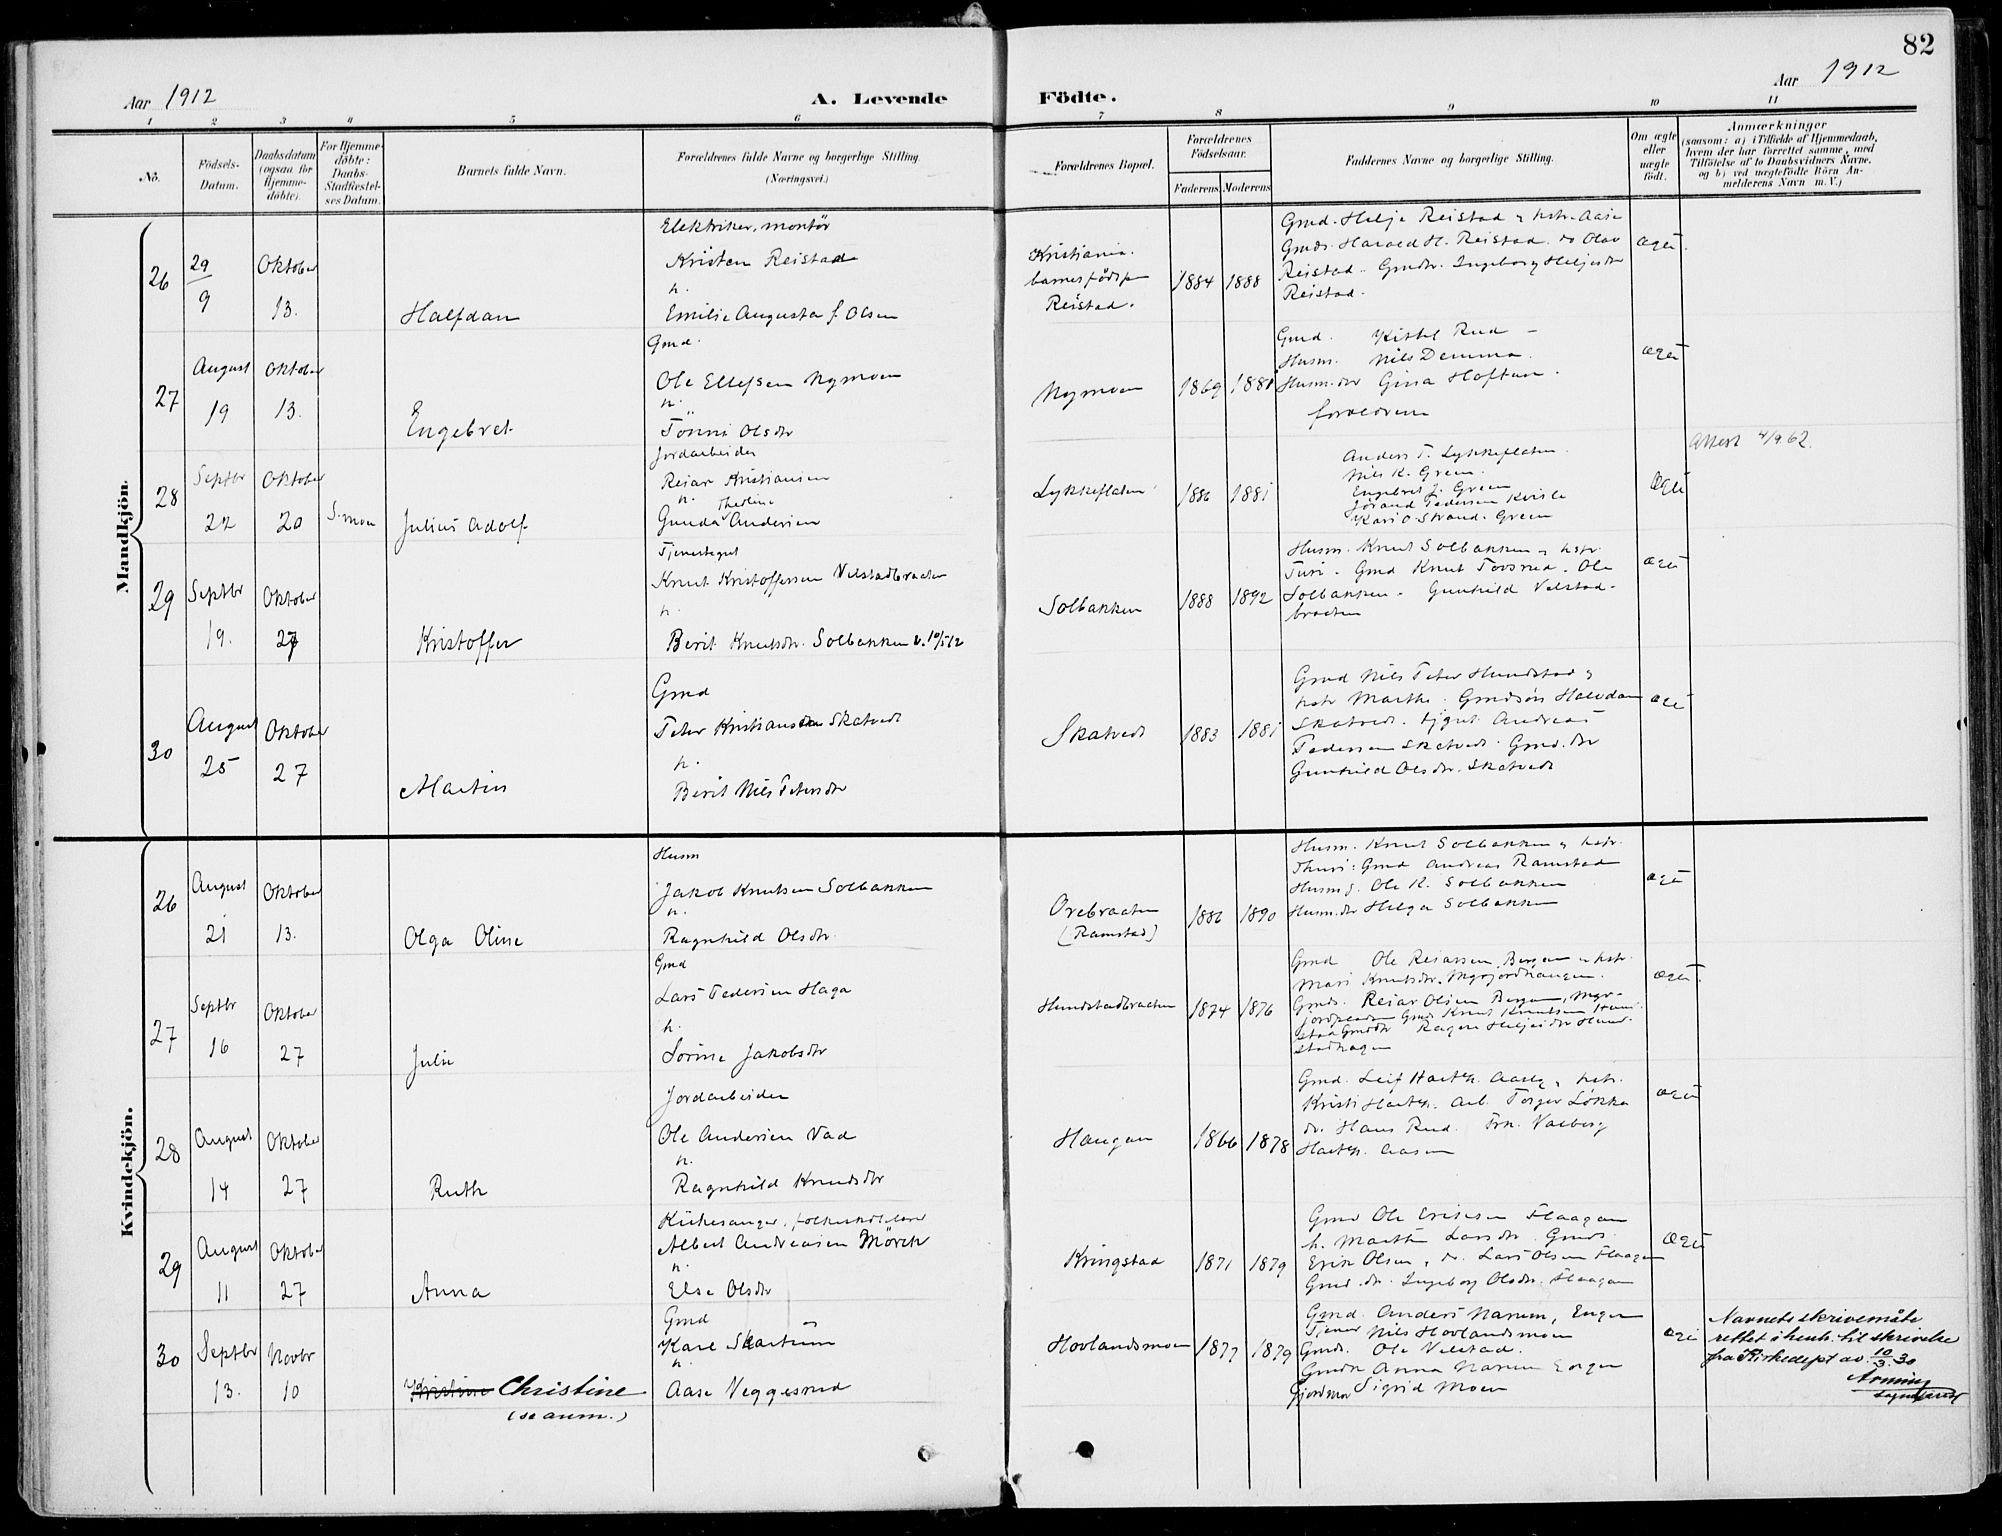 82
Aar 1912
A. Levende Födte.
Aar 1912
1 2 3 4 5 6 7 8 9 10 11
No.
Födsels-Datum.
Daabsdatum (ogsaa for Hjemme-døbte).
For Hjemme-døbte: Daabs-Stadfæstel-ses Datum.
Barnets fulde Navn.
Forældrenes fulde Navne og borgerlige Stilling.
(Næringsvei.)
Forældrenes Bopæl.
Forældrenes Födselsaar.
Faderens Moderens
Faddernes Navne og borgerlige Stilling.
Om ægte eller uægte födt.
Anmærkninger
(saasom: a) i Tilfælde af Hjemmedaab, hvem der har forrettet samme, med Tilföielse af to Daabsvidners Navne. og b) ved uægtefödte Börn An-melderens Navn m. V.)
Mandkjön.
26
29/9
Oktober 13.
Halfdan
Elektriker, montör
Kristen Reistad
h.
Emilie Augusta f. Olsen
Kristiania.
barnesfödsp
Reistad.
1884 1888
Gmd. Helje Reistad og hstr. Aase
Gmds. Harald H. Reistad. do Olav
Reistad. Gmdtr. Ingeborg Heljesdtr
Reistad.
ægte
27
August 19
Oktober 13.
Engebret
Gmd.
Ole Ellefsen Nymoen
h.
Tönni Olsdtr
Nymoen
1869 1881
Gmd. Kittel Rud
Husm. Nils Demma.
Husm.dtr Gina Haftun.
forældrene
ægte
28
Septbr 22
Oktober 20
S. moen
Julius Adolf
Jordarbeider
Reiar Kristiansen
h. Thedine
Gunda Andersen
Lykkeflaten
1886 1881
Anders T. Lykkeflaten
Nils K. Green.
Engebret J. Green
Jörand Pedersen Kvisle
Kari O. Strand. Green
ægte
Attest 4/9 62.
29
Septbr 19.
Oktober 27
Kristoffer
Tjenestegut
Knut Kristoffersen Velstadbraaten
h.
Berit Knutsdtr. Solbakken v. 10/5 12
Solbakken
1888 1892
Husm. Knut Solbakken og hstr.
Turi. Gmd Knut Tovsrud. Ole
Solbakken. Gunhild Velstad-
braaten
ægte
30
August 25
Oktober 27
Martin
Gmd
Peter Kristiansen Skatvedt
h.
Berit Nils Petersdtr
Skatvedt
1883 1881
Gmd Nils Peter Hundstad og
hstr Marthe. Gmdsön Halvdan
Skatvedt. tjgut Andreas
Pedersen Skatvedt. Gmd.dtr
Gunhild Olsdtr. Skatvedt
ægte
Kvindekjön.
26
August 21
Oktober 13.
Olga Oline
Husm
Jakob Knutsen Solbakken
h.
Ragnhild Olsdtr.
Orebraaten
(Ramstad)
1886 1890
Husm. Knut Solbakken og hstr.
Thuri. Gmd Andreas Ramstad
Husms. Ole K. Solbakken
Husm.dtr Helga Solbakken
ægte
27
Septbr 16
Oktober 27
Julie
Gmd
Lars Pedersen Haga
h.
Sörine Jakobsdtr
Hundstadbraaten
1874 1876
Gmd Ole Reiarsen Bergan og hstr.
Mari Knutsdtr. Myrjordhaugen.
Gmds. Reiar Olsen Bergan, Myr-
jordpladsen Gmds Knut Knutsen Hund-
stad Gmddtr Ragna Heljesdtr Hund-
stadhagen
ægte
28
August 14
Oktober 27
Ruth
Jordarbeider
Ole Andersen Vad
h.
Ragnhild Knudsdtr
Haugan
1866 1878
Gmd. Leif Hartm. Aasen, hstr.
Kristi Hartm. Arb. Torger Lökka
do. Hans Rud. Frk. Valborg
Hartm. Aasen
ægte
29
August 11
Oktober 27
Anna
Kirkesanger, folkeskolelærer
Albert Andreasen Mörch
h.
Else Olsdtr
Kringstad
1871 1879
Gmd Ole Eriksen Flaagan
h. Marthe Larsdtr. Gmds.
Erik Olsen, do. Lars Olsen Flaagan
Gmd.dtr. Ingeborg Olsdtr. Flaagan
ægte
30
Septbr 13.
Novbr 10
Kristine Christine
(se anm.)
Gmd
Karl Skartum
h.
Aase Veggesrud
Hovlandsmoen
1877 1879
Gmd. Anders Narum, Enger
Tjener Nils Hovlandsmoen
Gmds. Ole Velstad.
Gmdtr Anna Narum Enger
Gjordmor Sigrid Moen
ægte
Navnets skrivemåte
rettet i henh. til skrivelse
fra Kirkedept av 10/3.30
Arming
sogneprest